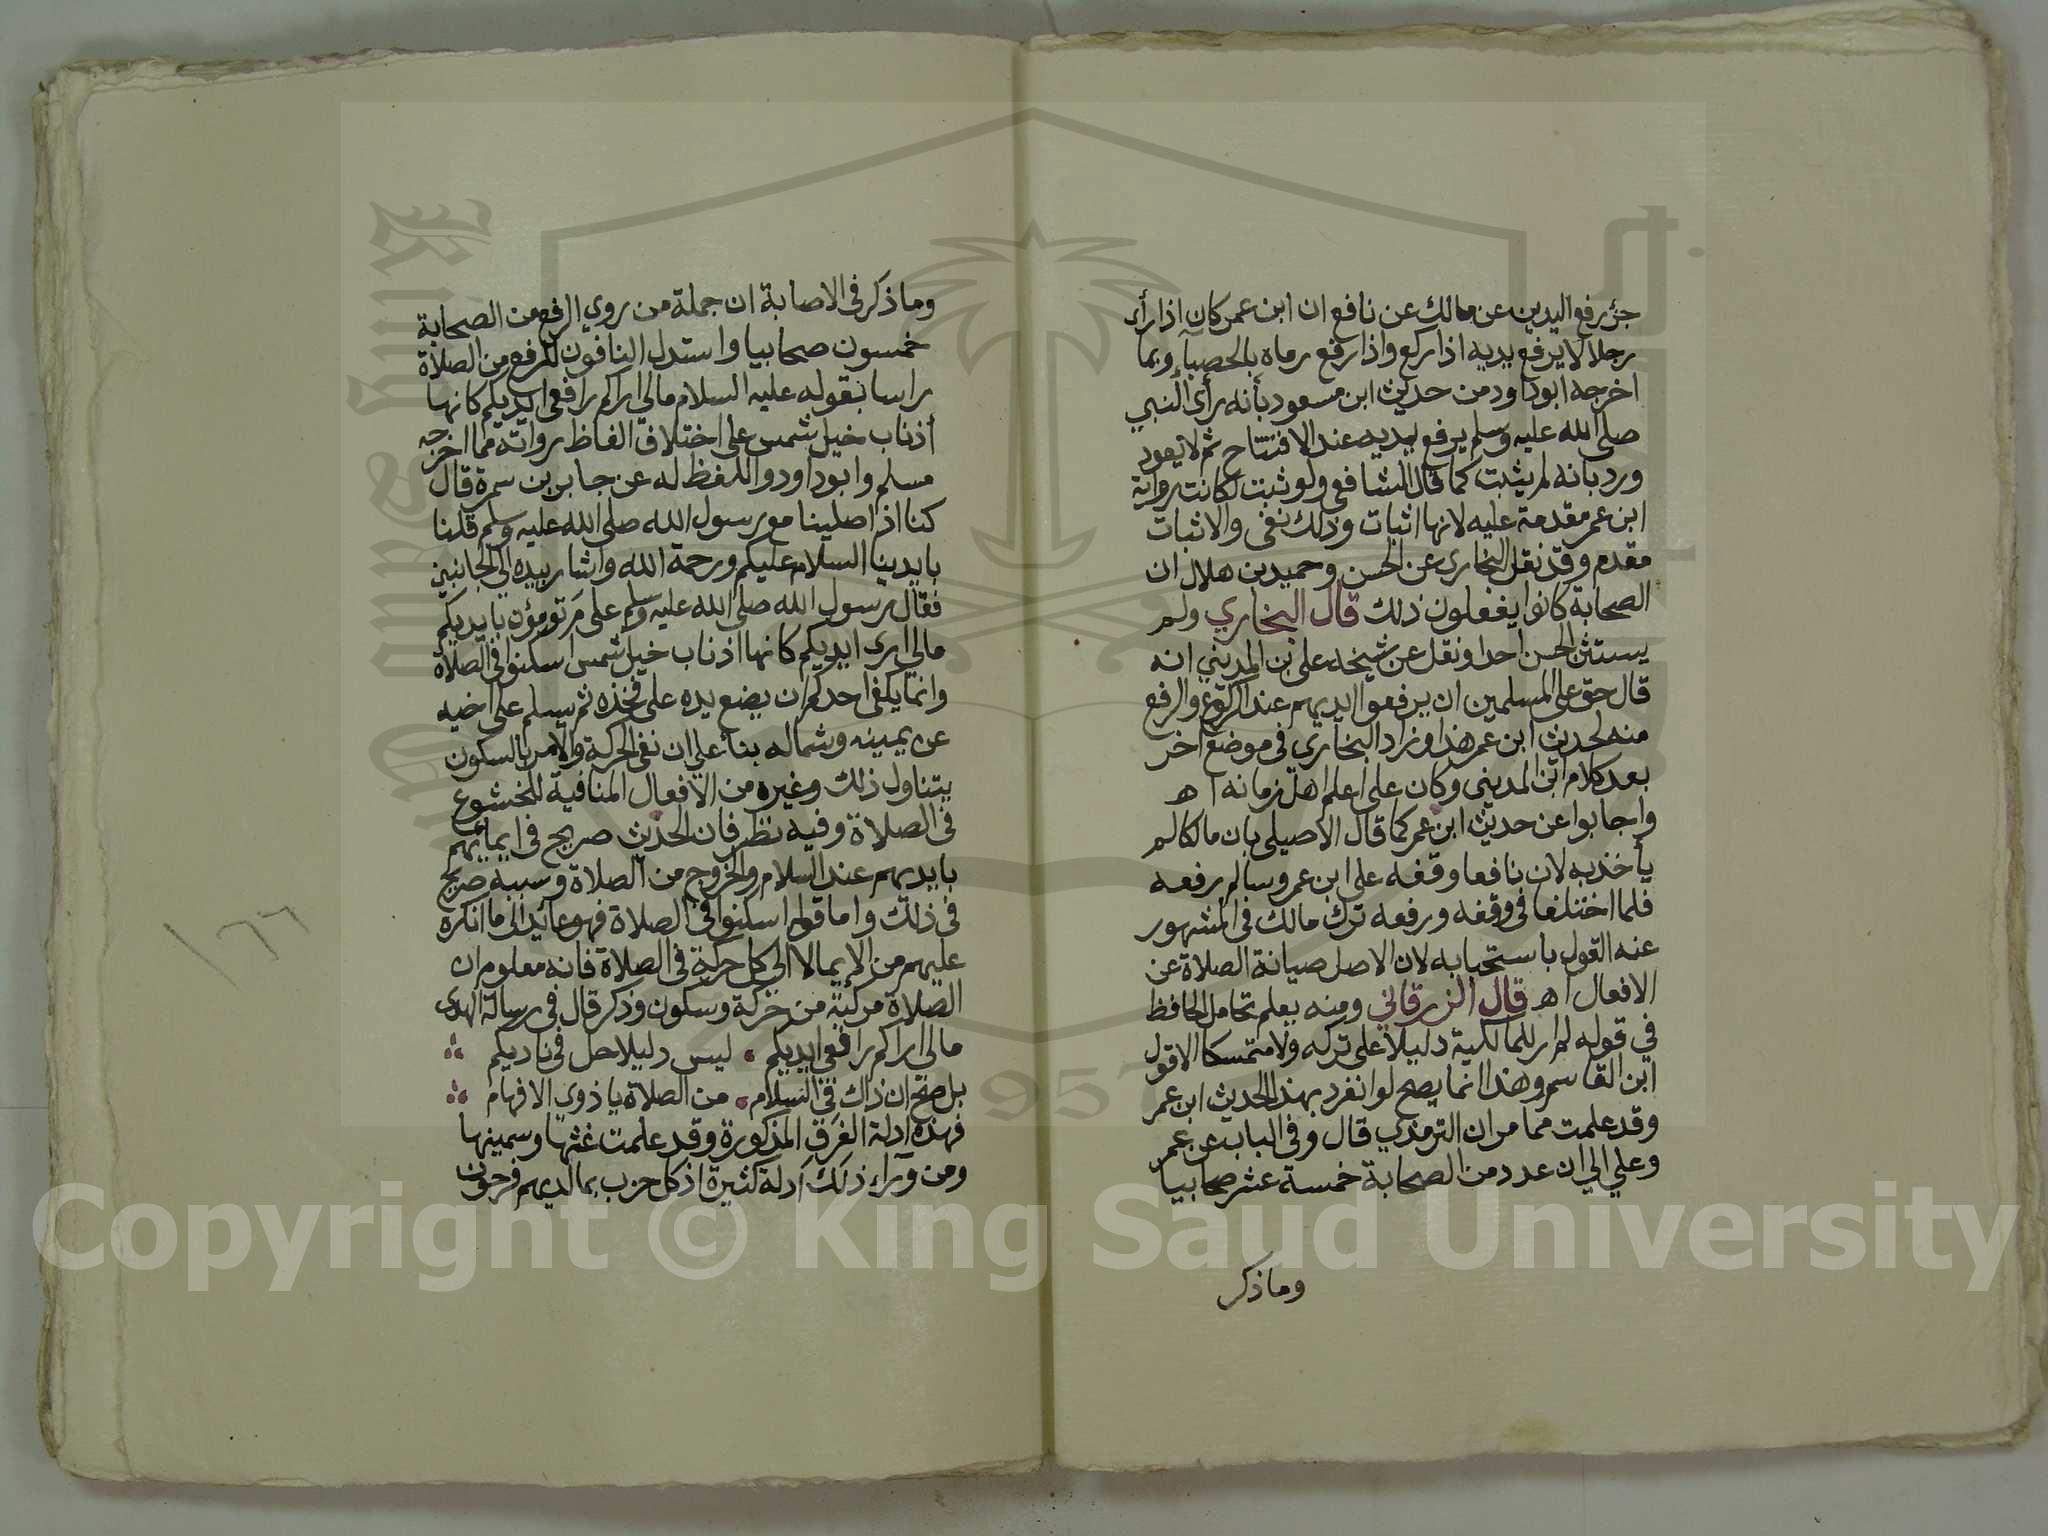 جزء رفع اليدين عن مالك عن نافع ان ابن عمر كان اذا رأى
رجلا لا يرفع يديه اذا ركع واذا رفع رماه بالحصبآ وبما
اخرجه ابوداود من حديث ابن مسعود بأنه رأى النبي
صلى الله عليه وسلم يرفع يديه عند الافتتاح ثم لا يعود
ورد بانه لم يثبت كما قال الشافعي ولو ثبت لكانت رواية
ابن عمر مقدمة عليه لانها اثبات وذلك نفى والاثبات
مقدم وقد نقل البخارى عن الحسن وحميد بن هلال ان
الصحابة كانوا يفعلون ذلك قال البخاري ولم
يستثن الحسن احدا ونقل عن شيخه على بن المديني انه
قال حق على المسلمين ان يرفعوا ايديهم عند الركوع والرفع
منه لحديث ابن عمر هذا وزاد البخاري في موضع آخر
بعد كلام ابن المديني وكان على اعلم اهل زمانه اه
واجابوا عن حديث ابن عمر كما قال الاصيلى بان مالكا لم
يأخذ به لان نافعا وقفه على ابن عمر وسالم رفعه
فلما اختلفا فى وقفه ورفعه ترك مالك فى المشهور
عنه القول باستحبابه لان الاصل صيانة الصلاة عن
الافعال اه قال الزرقاني ومنه يعلم تحامل الحافظ
في قوله لم ار للمالكية دليلا على تركه ولا متمسكا الا قول
ابن القاسم وهذا انما يصح لو انفرد بهذا الحديث ابن عمر
وقد علمت مما مر ان الترمذي قال وفى الباب عن عمر
وعلي الى ان عدد من الصحابة خمسة عشر صحابيا
وما ذكر
وما ذكر فى الاصابة ان جملة من روي الرفع من الصحابة
خمسون صحابيا واستدل النافون للرفع من الصلاة
راسا بقوله عليه السلام مالي اراكم رافعى ايديكم كانها
أذناب خيل شمس على اختلاف الفاظ رواته مما اخرجه
مسلم وابوداود واللفظ له عن جابر بن سمرة قال
كنا اذا صلينا مع رسول الله صلى الله عليه وسلم قلنا
بايدينا السلام عليكم ورحمة الله واشار بيده الى الجانبين
فقال رسول الله صلى الله عليه وسلم على مَ تومؤن بايديكم
مالي ارى ايديكم كانها اذناب خيل شمس اسكنوا في الصلاة
وانما يكفى احدكم ان يضع يده على فخذه ثم يسلم على اخيه
عن يمينه وشماله بنأ على ان نفى الحركة والامر بالسكون
يتناول ذلك وغيره من الافعال المنافية للخشوع
فى الصلاة وفيه نظر فان الحديث صريح فى ايمايهم
بايديهم عند السلام والخروج من الصلاة وسببه صريح
فى ذلك واما قوله اسكنوا في الصلاة فهو عائد الى ما انكره
عليهم من الإيما لا الى كل حركة فى الصلاة فانه معلوم ان
الصلاة مركبة من حركة وسكون وذكر قال فى رسالة الهدى
مالي اراكم رافعي ايديكم ليس دليلا حل فى ناديكم
بل صح ان ذاك في السلام من الصلاة يا ذوى الافهام
فهذه ادلة الفرق المذكورة وقد علمت غثها وسمينها
ومن وراء ذلك أدلة كثيرة اذ كل حزب بما لديهم فرحون
١٦٦
King Saud University
1957
Copyright © King Saud University